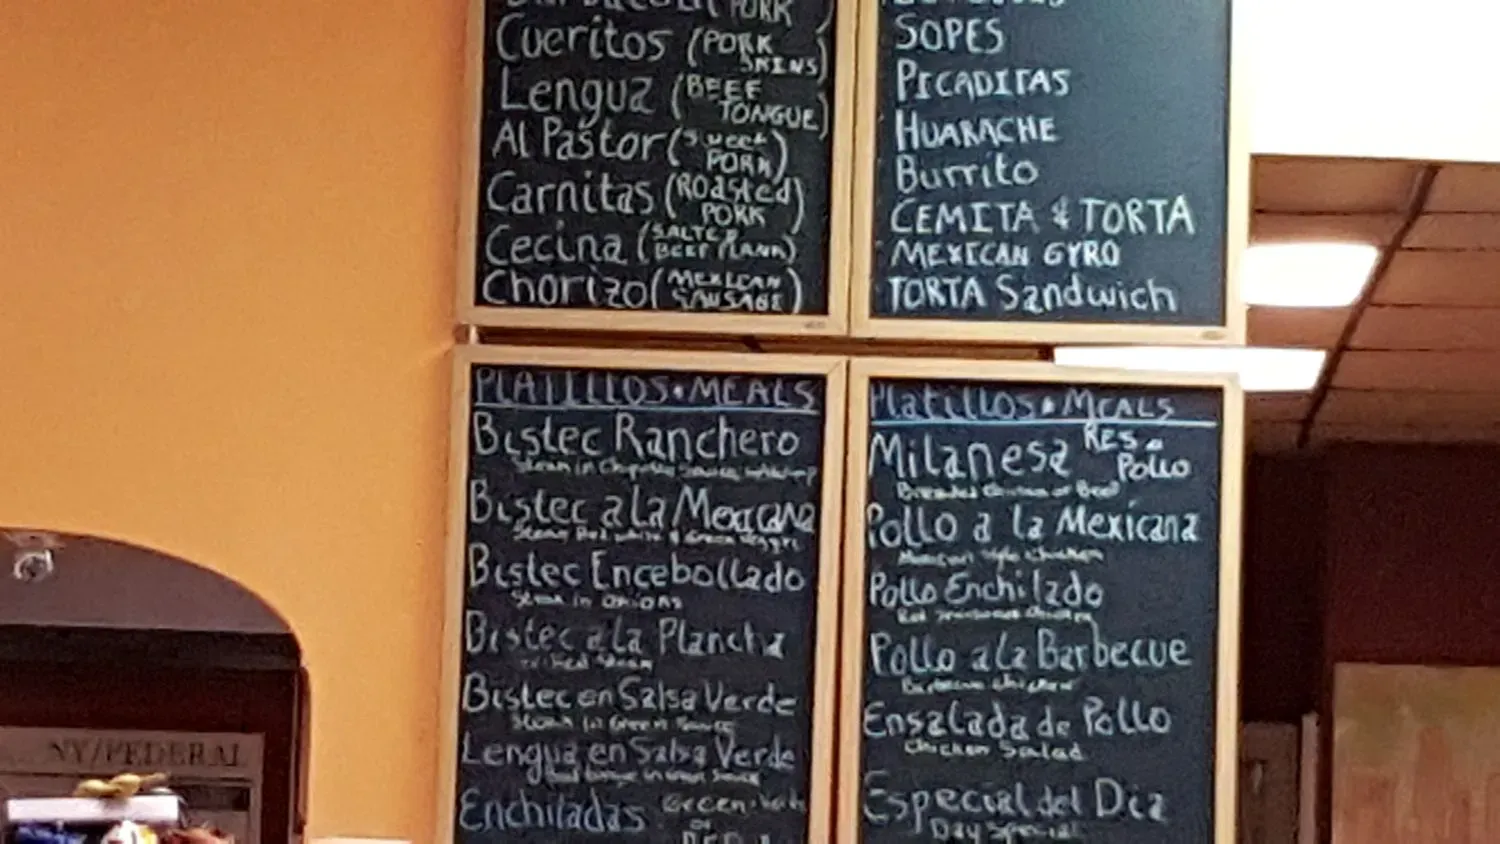 (PORK)
Cueritos (PORK SKINS)
Lengua (BEEF TONGUE)
Al Pastor (Sweet PORK)
Carnitas (Roasted PORK)
Cecina (SALTED BEEF FLANK)
Chorizo (MEXICAN SAUSAGE)
SOPES
PICADITAS
HUARACHE
Burrito
CEMITA & TORTA
MEXICAN GYRO
TORTA Sandwich
PLATILLOS • MEALS
Bistec Ranchero
Steak in Chipotle Sauce
Bistec a La Mexicana
Steak Red white & Green
Bistec Encebollado
Steak in Onions
Bistec a La Plancha
Steak
Bistec en Salsa Verde
Steak in Green Sauce
Lengua en Salsa Verde
Beef tongue in Green Sauce
Enchiladas Green
or
RED
Platillos • MEALS
Milanesa RES o Pollo
Breaded Chicken or Beef
Pollo a la Mexicana
Mexican Style Chicken
Pollo Enchilado
Pollo a La Barbecue
Barbecue Chicken
Ensalada de Pollo
Chicken Salad
Especial del Dia
Day Special
NY/FEDERAL